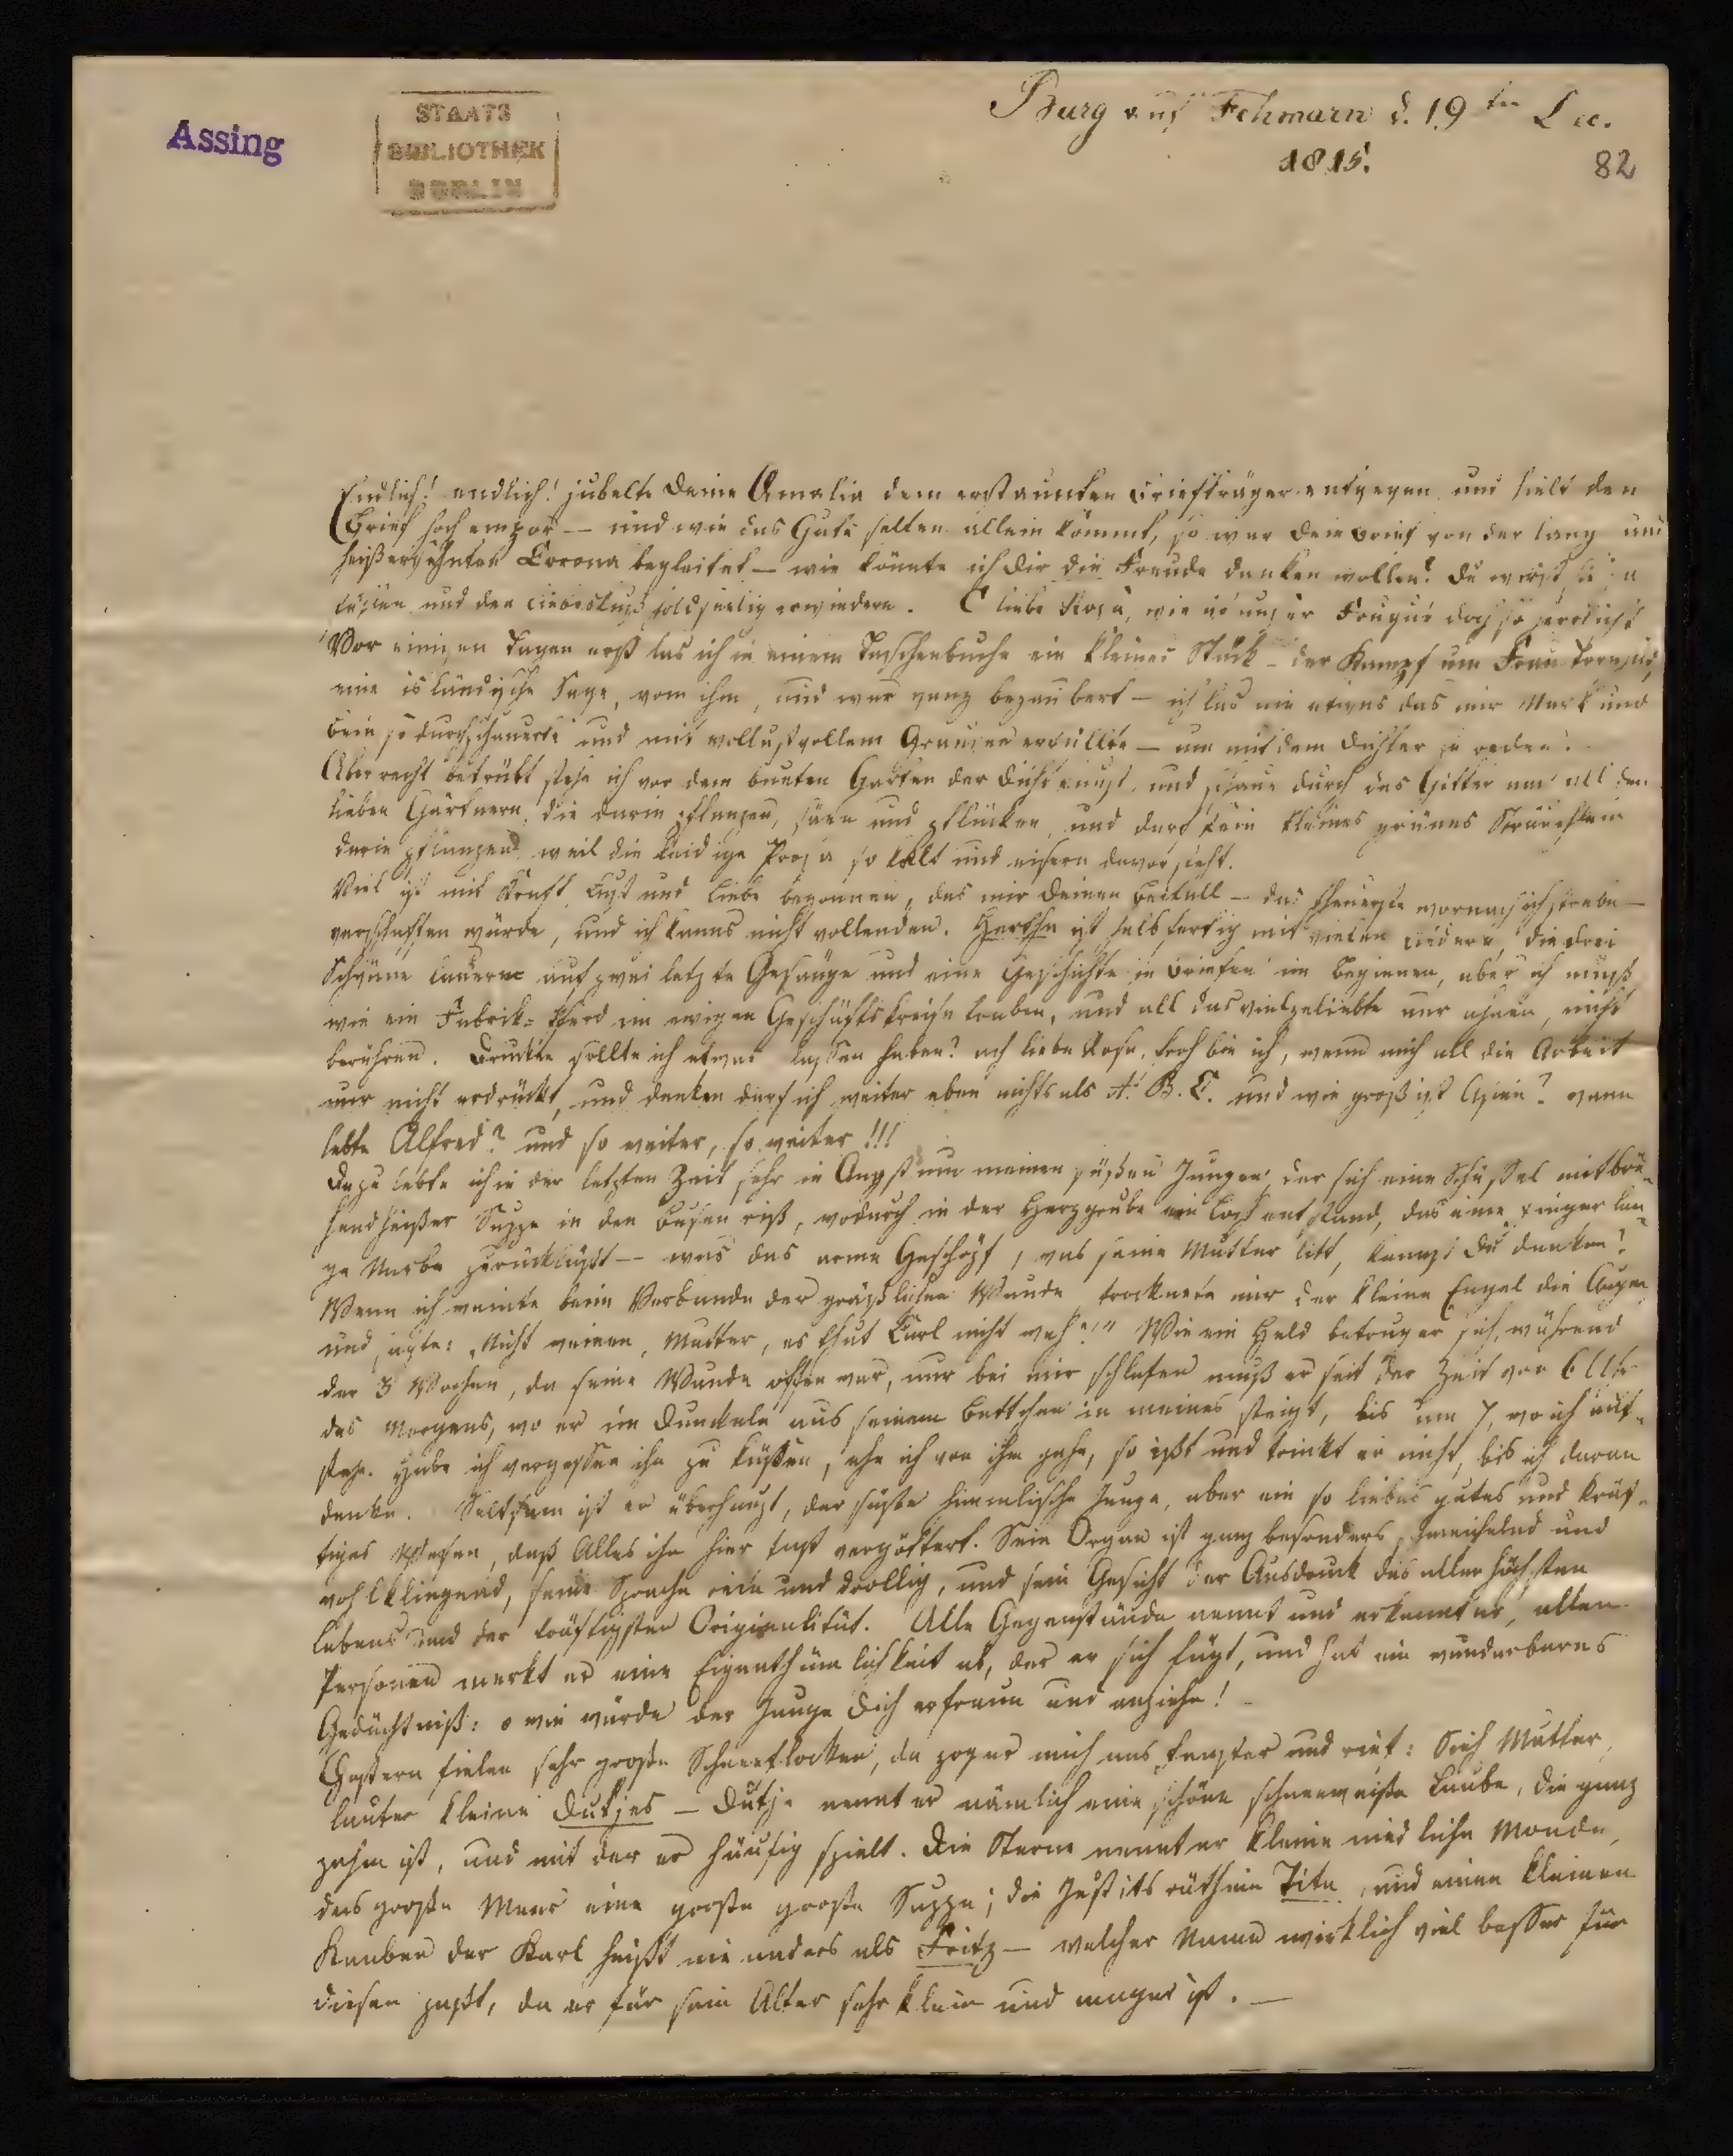 Assing
STAATS
BIBLIOTHEK
BERLIN
Burg auf Fehmarn d. 19ten Dec.
1815.
82
Endlich! endlich! jubelte Deine Amalia dem erstaunten Briefträger entgegen und hielt den
Brief hoch empor — und wie das Gute selten allein kömmt, so war Dein Brief von der lang und
heißersehnten Corona begleitet — wie könnte ich Dir die Freude danken wollen? Du wirst sie
fühlen und den Liebeskuß holdseelig erwiedern. O liebe Rosa, wie ist unser Fouqué doch so herrlich!
Vor einigen Tagen erst las ich in einem Taschenbuche ein kleines Stück — der Kampf um
eine isländische Sage, von ihm, und war ganz bezaubert — ich las nie etwas das mir Mark und
Bein so durchschauerte und mit wollustvollem Grausen erfüllte — um mit dem Dichter zu reden.
Aber recht betrübt stehe ich vor dem bunten Garten der Dichtkunst, und schaue durch das Gitter nur all den
lieben Gärtnern, die darin pflanzen, säen und pflücken und darf kein kleines grünes Sträuchlein
darin pflanzen weil die leidige Prosa so kalt und eisern davor steht.
Viel ist mit Kraft, Lust und Liebe begonnen, das mir Deinen Beifall — das theuerste wornach ich strebe —
verschaffen würde, und ich kanns nicht vollenden. Hertha ist halb fertig mit vielen Liedern, die drei
lauern auf zwei letzte Gesänge und eine Geschichte in Briefen im Beginnen, aber ich muß
wie ein Fabrik-Pferd im ewigen Geschäftskreise traben, und all das vielgeliebte nur ahnen, nicht
berühren. Drucken sollte ich etwas lassen haben? ach liebe Rosa, froh bin ich, wenn mich all die Arbeit
nur nicht erdrückt, und denken darf ich weiter eben nichts als A. B. C. und wie groß ist Asien? wann
lebte Alfred? und so weiter, so weiter!!!
Dazu lebte ich in der letzten Zeit sehr in Angst um meinen süßen Jungen, der sich eine Schüssel mit brü-
hendheißer Suppe in den Busen riß, wodurch in der Herzgrube ein Loch entstand, das eine Finger lan-
ge Narbe zurückläßt — was das arme Geschöpf, was seine Mutter litt, kannst Du denken?
Wenn ich weinte beim Verbande der gräßlichen Wunde trocknete mir der kleine Engel die Augen
und sagte: „Nicht weinen, Mutter, es thut Carl nicht weh!" Wie ein Held betrug er sich, während
der 3 Wochen, da seine Wunde offen war, nur bei mir schlafen muß er seit der Zeit von 6 Uhr
des Morgens, wo er im Dunckeln aus seinem Bettchen in meines steigt, bis um 7, wo ich auf-
stehe. Habe ich vergessen ihn zu küssen, ehe ich von ihm gehe, so ißt und trinkt er nicht, bis ich daran
denke. Seltsam ist er überhaupt, der süße himmlische Junge, aber ein so liebes gutes und kräf-
tiges Wesen, daß Alles ihn hier fast vergöttert. Sein Organ ist ganz besonders schmeichelnd und
wohlklingend, seine Sprache rein und drollig, und sein Gesicht der Ausdruck des allerhöchsten
Lebens und der kräftigsten Originalität. Alle Gegenstände nennt und erkennt er, allen
Personen merkt er eine Eigenthümlichkeit ab, der er sich fügt, und hat ein wunderbares
Gedächtniß: o wie würde der Junge Dich erfreun und anziehn! —
Gestern fielen sehr große Schneeflocken, da zog er mich ans Fenster und rief: Sieh Mutter,
lauter kleine Dutjes — Dutje nennt er nämlich eine schöne schneeweiße Taube, die ganz
zahm ist, und mit der er häufig spielt. Die Sterne nennt er kleine niedliche Monde,
das große Meer eine große große Suppe; die Justitsräthin Tita, und einen kleinen
Knaben der Karl heißt nie anders als Fritz — welcher Name wirklich viel besser für
diesen paßt, da er für sein Alter sehr klein und mager ist. —